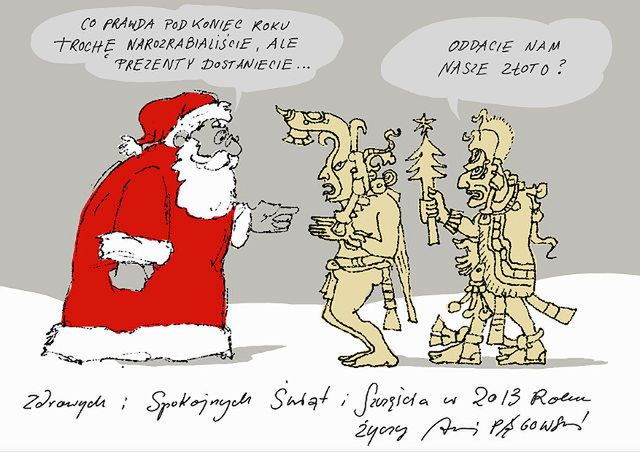 CO PRAWDA POD KONIEC ROKU
TROCHĘ NAROZRABIALIŚCIE, ALE
PREZENTY DOSTANIECIE...
ODDACIE NAM
NASZE ZŁOTO?
Zdrowych i Spokojnych Świąt i Szczęścia w 2013 Roku
życzy PĄGOWSKI